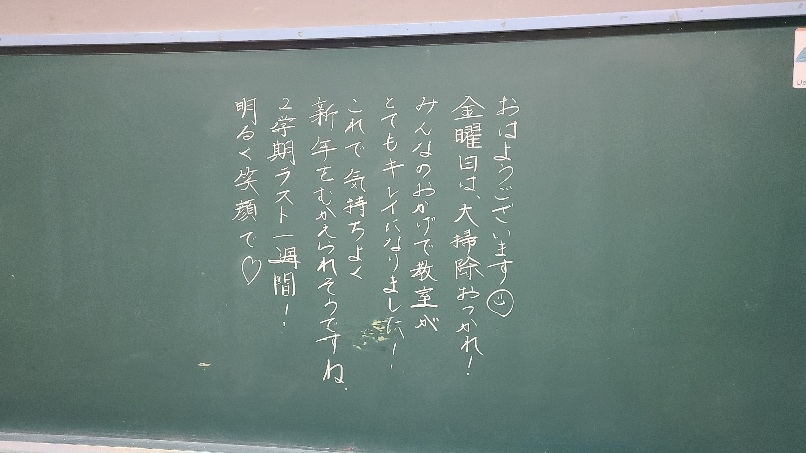 おはようございます☺
金曜日は、大掃除おつかれ!
みんなのおかげで教室が
とてもキレイになりました!
これで気持ちよく
新年をむかえられそうですね。
2学期ラスト一週間!
明るく笑顔で♡